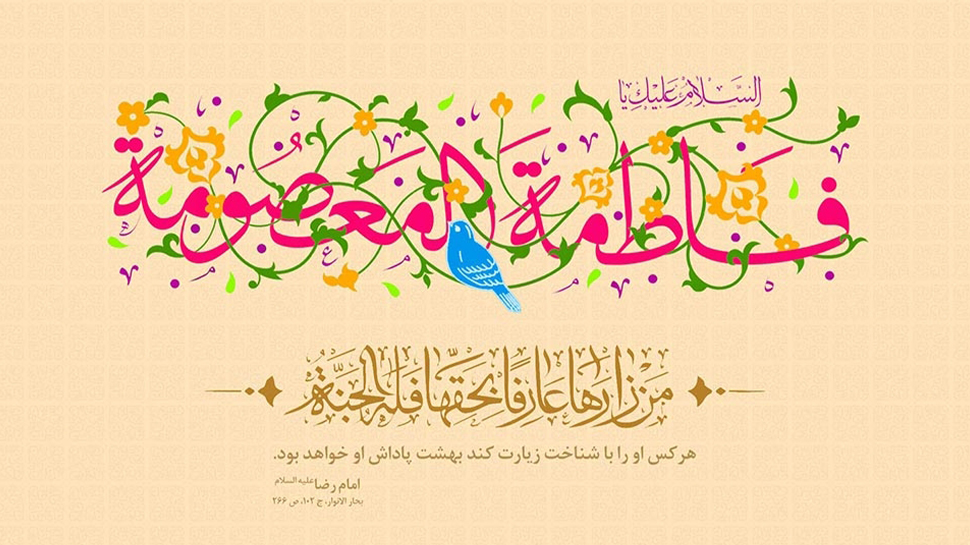 السَّلامُ عَلَیْكِ یا
فاطِمَةَ المَعصُومَة
مَن زارَها عارِفًا بِحَقِّها فَلَهُ الجَنَّةُ
هرکس او را با شناخت زیارت کند بهشت پاداش او خواهد بود.
امام رضا علیه السلام
بحار الانوار، ج ۱۰۲، ص ۲۶۶